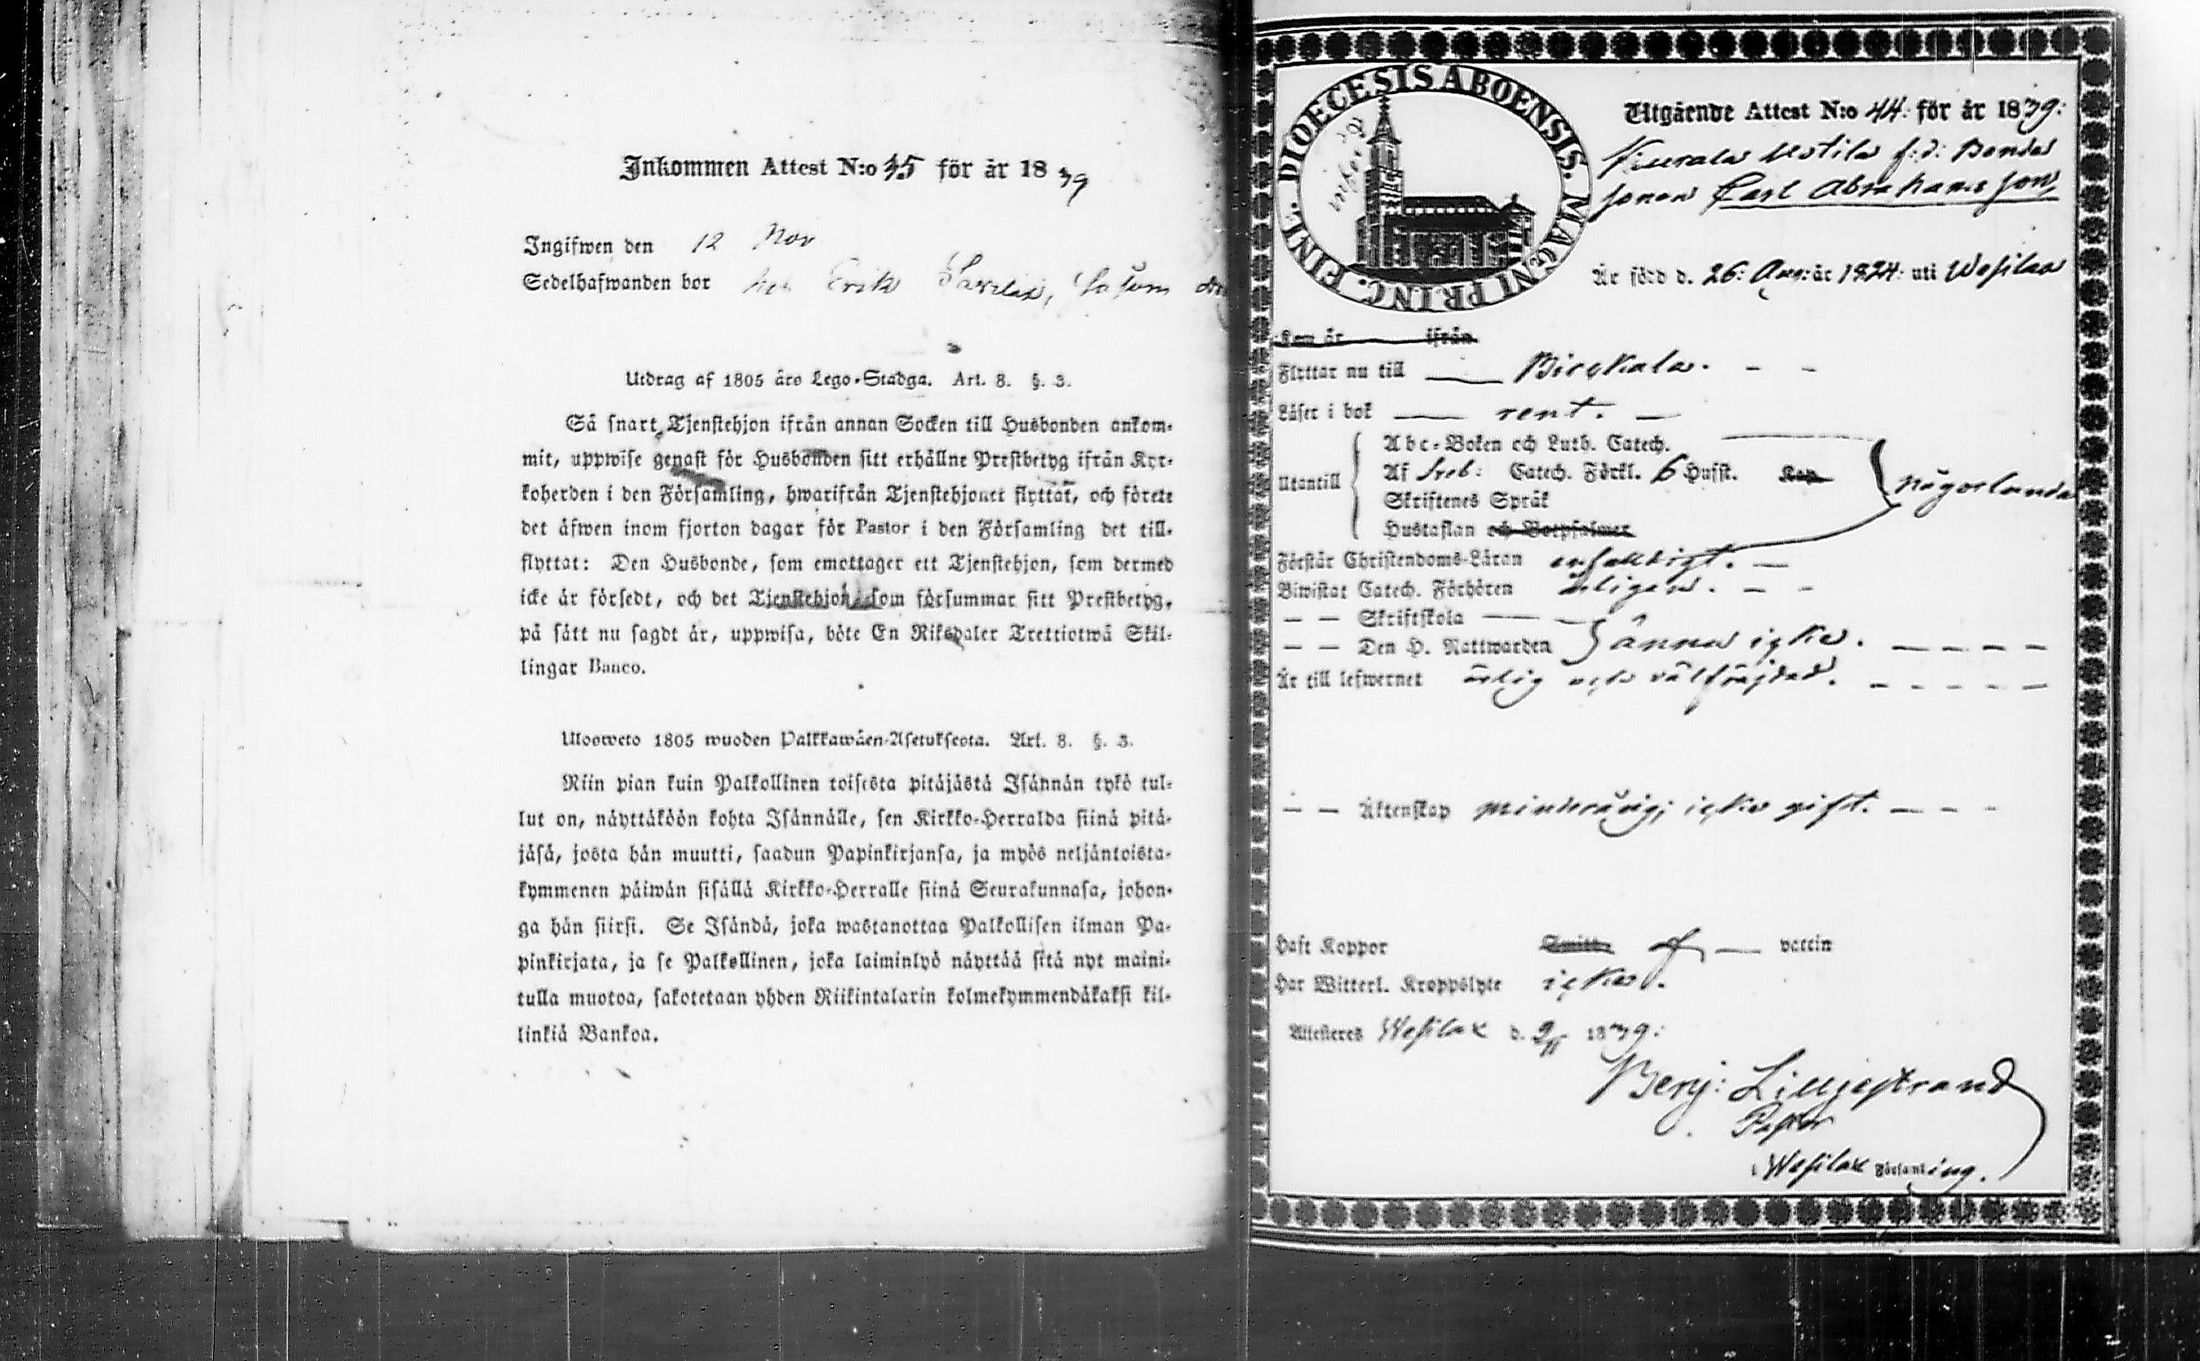 Inkommen Attest N:o 45 för år 1839
Ingifwen den 12 Nov
Sedelhafwanden bor hos Erik såsom
Utdrag af 1805 års Lego-Stadga. Art. 8. §. 3.
Så snart Tjenstehjon ifrån annan Socken till Husbonden ankom-
mit, uppwise genast för Husbonden sitt erhållne Prestbetyg ifrån Kyr-
koherden i den Församling, hwarifrån Tjenstehjonet flyttat, och förete
det äfwen inom fjorton dagar för Pastor i den Församling det till-
flyttat: Den Husbonde, som emottager ett Tjenstehjon, som dermed
icke är försedt, och det Tjenstehjon, som försummar sitt Prestbetyg,
på sätt nu sagdt är, uppwisa, böte En Riksdaler Trettiotwå Skil-
lingar Banco.
Ulosweto 1805 wuoden Palkkawäen-Asetuksesta. Art. 8. §. 3.
Niin pian kuin Palkollinen toisesta pitäjästä Isännän tykö tul-
lut on, näyttäköön kohta Isännälle, sen Kirkko-Herralda siinä pitä-
jäsä, josta hän muutti, saadun Papinkirjansa, ja myös neljäntoista-
kymmenen päiwän sisällä Kirkko-Herralle siinä Seurakunnasa, johon-
ga hän siirsi. Se Isändä, joka wastanottaa Palkollisen ilman Pa-
pinkirjata, ja se Palkollinen, joka laiminlyö näyttää sitä nyt maini-
tulla muotoa, sakotetaan yhden Riikintalarin kolmekymmendäkaksi kil-
linkiä Bankoa.
DIOECESIS ABOENSIS. MAGNI PRINC. FINL.
Utgående Attest N:o 44: för år 1839:
f:d: Bonde
sonen Carl Abrahams son,
Är född d. 26: Aug: år 1824: uti Wesilax
Kom år ifrån
Flyttar nu till Birckala.
Läser i bok rent.
Abc-Boken och Luth. Catech.
Utantill Af Sveb: Catech. Förkl. 6 Hufst. Kap. någorlunda
Skriftenes Språk
Hustaflan och Botpsalmer
Förstår Christendoms-Läran enfaldigt.
Biwistat Catech. Förhören årligen.
Skriftskola
Den H. Nattwarden ännu icke.
Är till lefwernet ärlig och välfrejdad.
Äktenskap minderårig; icke gift.
Haft Koppor Smitt. af vaccin
Har Witterl. Kroppslyte icke.
Attesteras Wesilax d. 9/11 1839:
Benj: Lilljestrand
Pastor
i Wesilax Församling.